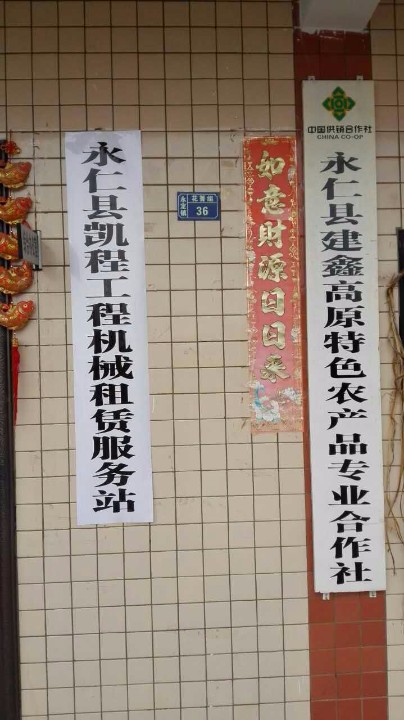 永仁县凯程工程机械租赁服务站
永定镇
花箐组
36
如意財源日日来
中国供销合作社
CHINA CO-OP
永仁县建鑫高原特色农产品专业合作社